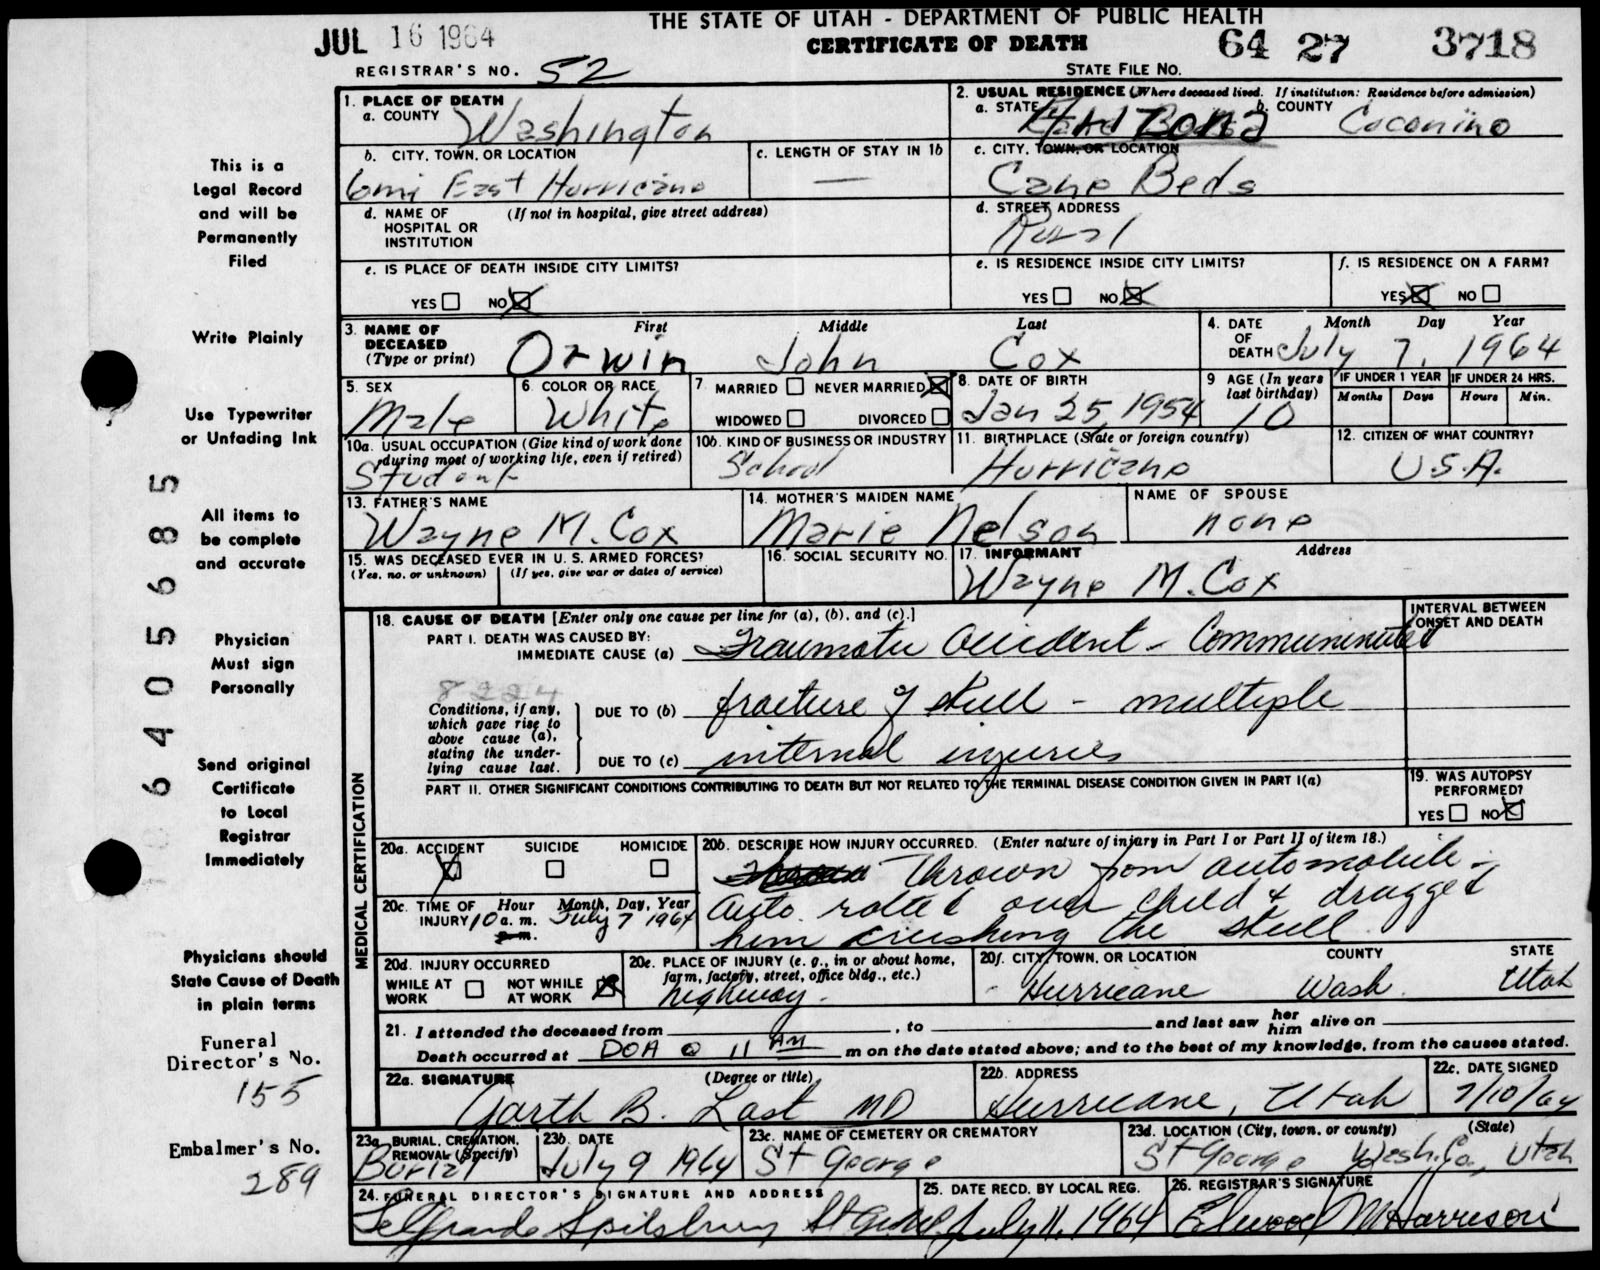 THE STATE OF UTAH - DEPARTMENT OF PUBLIC HEALTH
JUL 16 1964
CERTIFICATE OF DEATH
64 27 3718
REGISTRAR'S NO. 52
STATE FILE NO.
1. PLACE OF DEATH
a. COUNTY Washington
2. USUAL RESIDENCE (Where deceased lived. If institution: Residence before admission)
a. STATE Arizona b. COUNTY Coconino
b. CITY, TOWN, OR LOCATION
6 mi East Hurricane
c. LENGTH OF STAY IN 1b
—
c. CITY, TOWN, OR LOCATION
Cane Beds
d. NAME OF HOSPITAL OR INSTITUTION (If not in hospital, give street address)
d. STREET ADDRESS
Rural
e. IS PLACE OF DEATH INSIDE CITY LIMITS?
YES NO
e. IS RESIDENCE INSIDE CITY LIMITS?
YES NO
f. IS RESIDENCE ON A FARM?
YES NO
3. NAME OF DECEASED (Type or print)
First Middle Last
Orwin John Cox
4. DATE OF DEATH Month Day Year
July 7, 1964
5. SEX
Male
6. COLOR OR RACE
White
7. MARRIED NEVER MARRIED
WIDOWED DIVORCED
8. DATE OF BIRTH
Jan 25, 1954
9 AGE (In years last birthday)
10
IF UNDER 1 YEAR IF UNDER 24 HRS.
Months Days Hours Min.
10a. USUAL OCCUPATION (Give kind of work done during most of working life, even if retired)
Student
10b. KIND OF BUSINESS OR INDUSTRY
School
11. BIRTHPLACE (State or foreign country)
Hurricane
12. CITIZEN OF WHAT COUNTRY?
U.S.A.
13. FATHER'S NAME
Wayne M. Cox
14. MOTHER'S MAIDEN NAME
Marie Nelson
NAME OF SPOUSE
none
15. WAS DECEASED EVER IN U.S. ARMED FORCES?
(Yes, no, or unknown) (If yes, give war or dates of service)
16. SOCIAL SECURITY NO.
17. INFORMANT Address
Wayne M. Cox
18. CAUSE OF DEATH [Enter only one cause per line for (a), (b), and (c).]
INTERVAL BETWEEN ONSET AND DEATH
PART I. DEATH WAS CAUSED BY:
IMMEDIATE CAUSE (a) Traumatic Accident - Communinuted
8224
Conditions, if any, which gave rise to above cause (a), stating the underlying cause last.
DUE TO (b) fracture of skull - multiple
DUE TO (c) internal injuries
PART II. OTHER SIGNIFICANT CONDITIONS CONTRIBUTING TO DEATH BUT NOT RELATED TO THE TERMINAL DISEASE CONDITION GIVEN IN PART I(a)
19. WAS AUTOPSY PERFORMED?
YES NO
MEDICAL CERTIFICATION
20a. ACCIDENT SUICIDE HOMICIDE
20b. DESCRIBE HOW INJURY OCCURRED. (Enter nature of injury in Part I or Part II of item 18.)
Thrown from automobile -
auto rolled over child & dragged
him crushing the skull.
20c. TIME OF INJURY Hour Month, Day, Year
10 a. m. July 7 1964
p. m.
20d. INJURY OCCURRED
WHILE AT WORK NOT WHILE AT WORK
20e. PLACE OF INJURY (e. g., in or about home, farm, factory, street, office bldg., etc.)
highway.
20f. CITY, TOWN, OR LOCATION COUNTY STATE
Hurricane Wash. Utah
21. I attended the deceased from , to and last saw her him alive on
Death occurred at DOA @ 11 AM m on the date stated above; and to the best of my knowledge, from the causes stated.
22a. SIGNATURE (Degree or title)
Garth B. Last MD
22b. ADDRESS
Hurricane, Utah
22c. DATE SIGNED
7/10/64
23a BURIAL, CREMATION, REMOVAL (Specify)
Burial
23b. DATE
July 9 1964
23c. NAME OF CEMETERY OR CREMATORY
St George
23d. LOCATION (City, town, or county) (State)
St George Wash. Co, Utah
24. FUNERAL DIRECTOR'S SIGNATURE AND ADDRESS
Spilsbury
25. DATE RECD. BY LOCAL REG.
July 11, 1964
26. REGISTRAR'S SIGNATURE
Elwood M Harrison
This is a
Legal Record
and will be
Permanently
Filed
Write Plainly
Use Typewriter
or Unfading Ink
All items to
be complete
and accurate
Physician
Must sign
Personally
Send original
Certificate
to Local
Registrar
Immediately
Physicians should
State Cause of Death
in plain terms
Funeral
Director's No.
155
Embalmer's No.
289
64056855